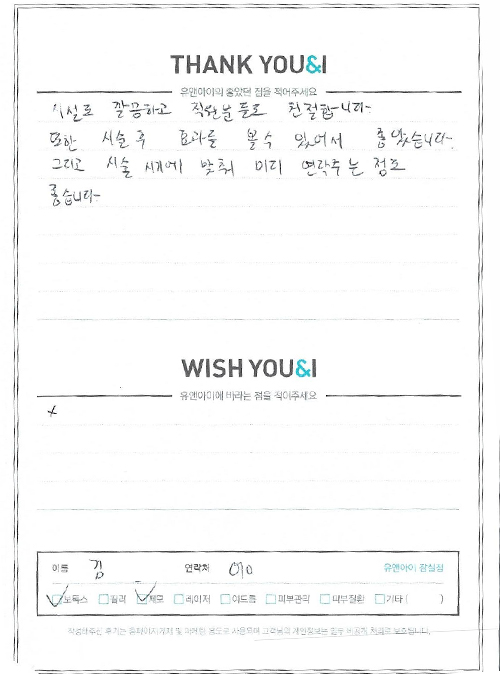 THANK YOU&I
유앤아이의 좋았던 점을 적어주세요
시설도 깔끔하고 직원분들도 친절합니다.
또한 시술 후 효과를 볼 수 있어서 좋았습니다.
그리고 시술 시기에 맞춰 미리 연락주는 점도
좋습니다.
WISH YOU&I
유앤아이에 바라는 점을 적어주세요
x
이름 김 연락처 010 유앤아이 잠실점
보톡스 필러 제모 레이저 여드름 피부관리 피부질환 기타 ( )
작성해주신 후기는 홈페이지게재 및 마케팅 용도로 사용되며 고객님의 개인정보는 일부 비공개 처리로 보호됩니다.